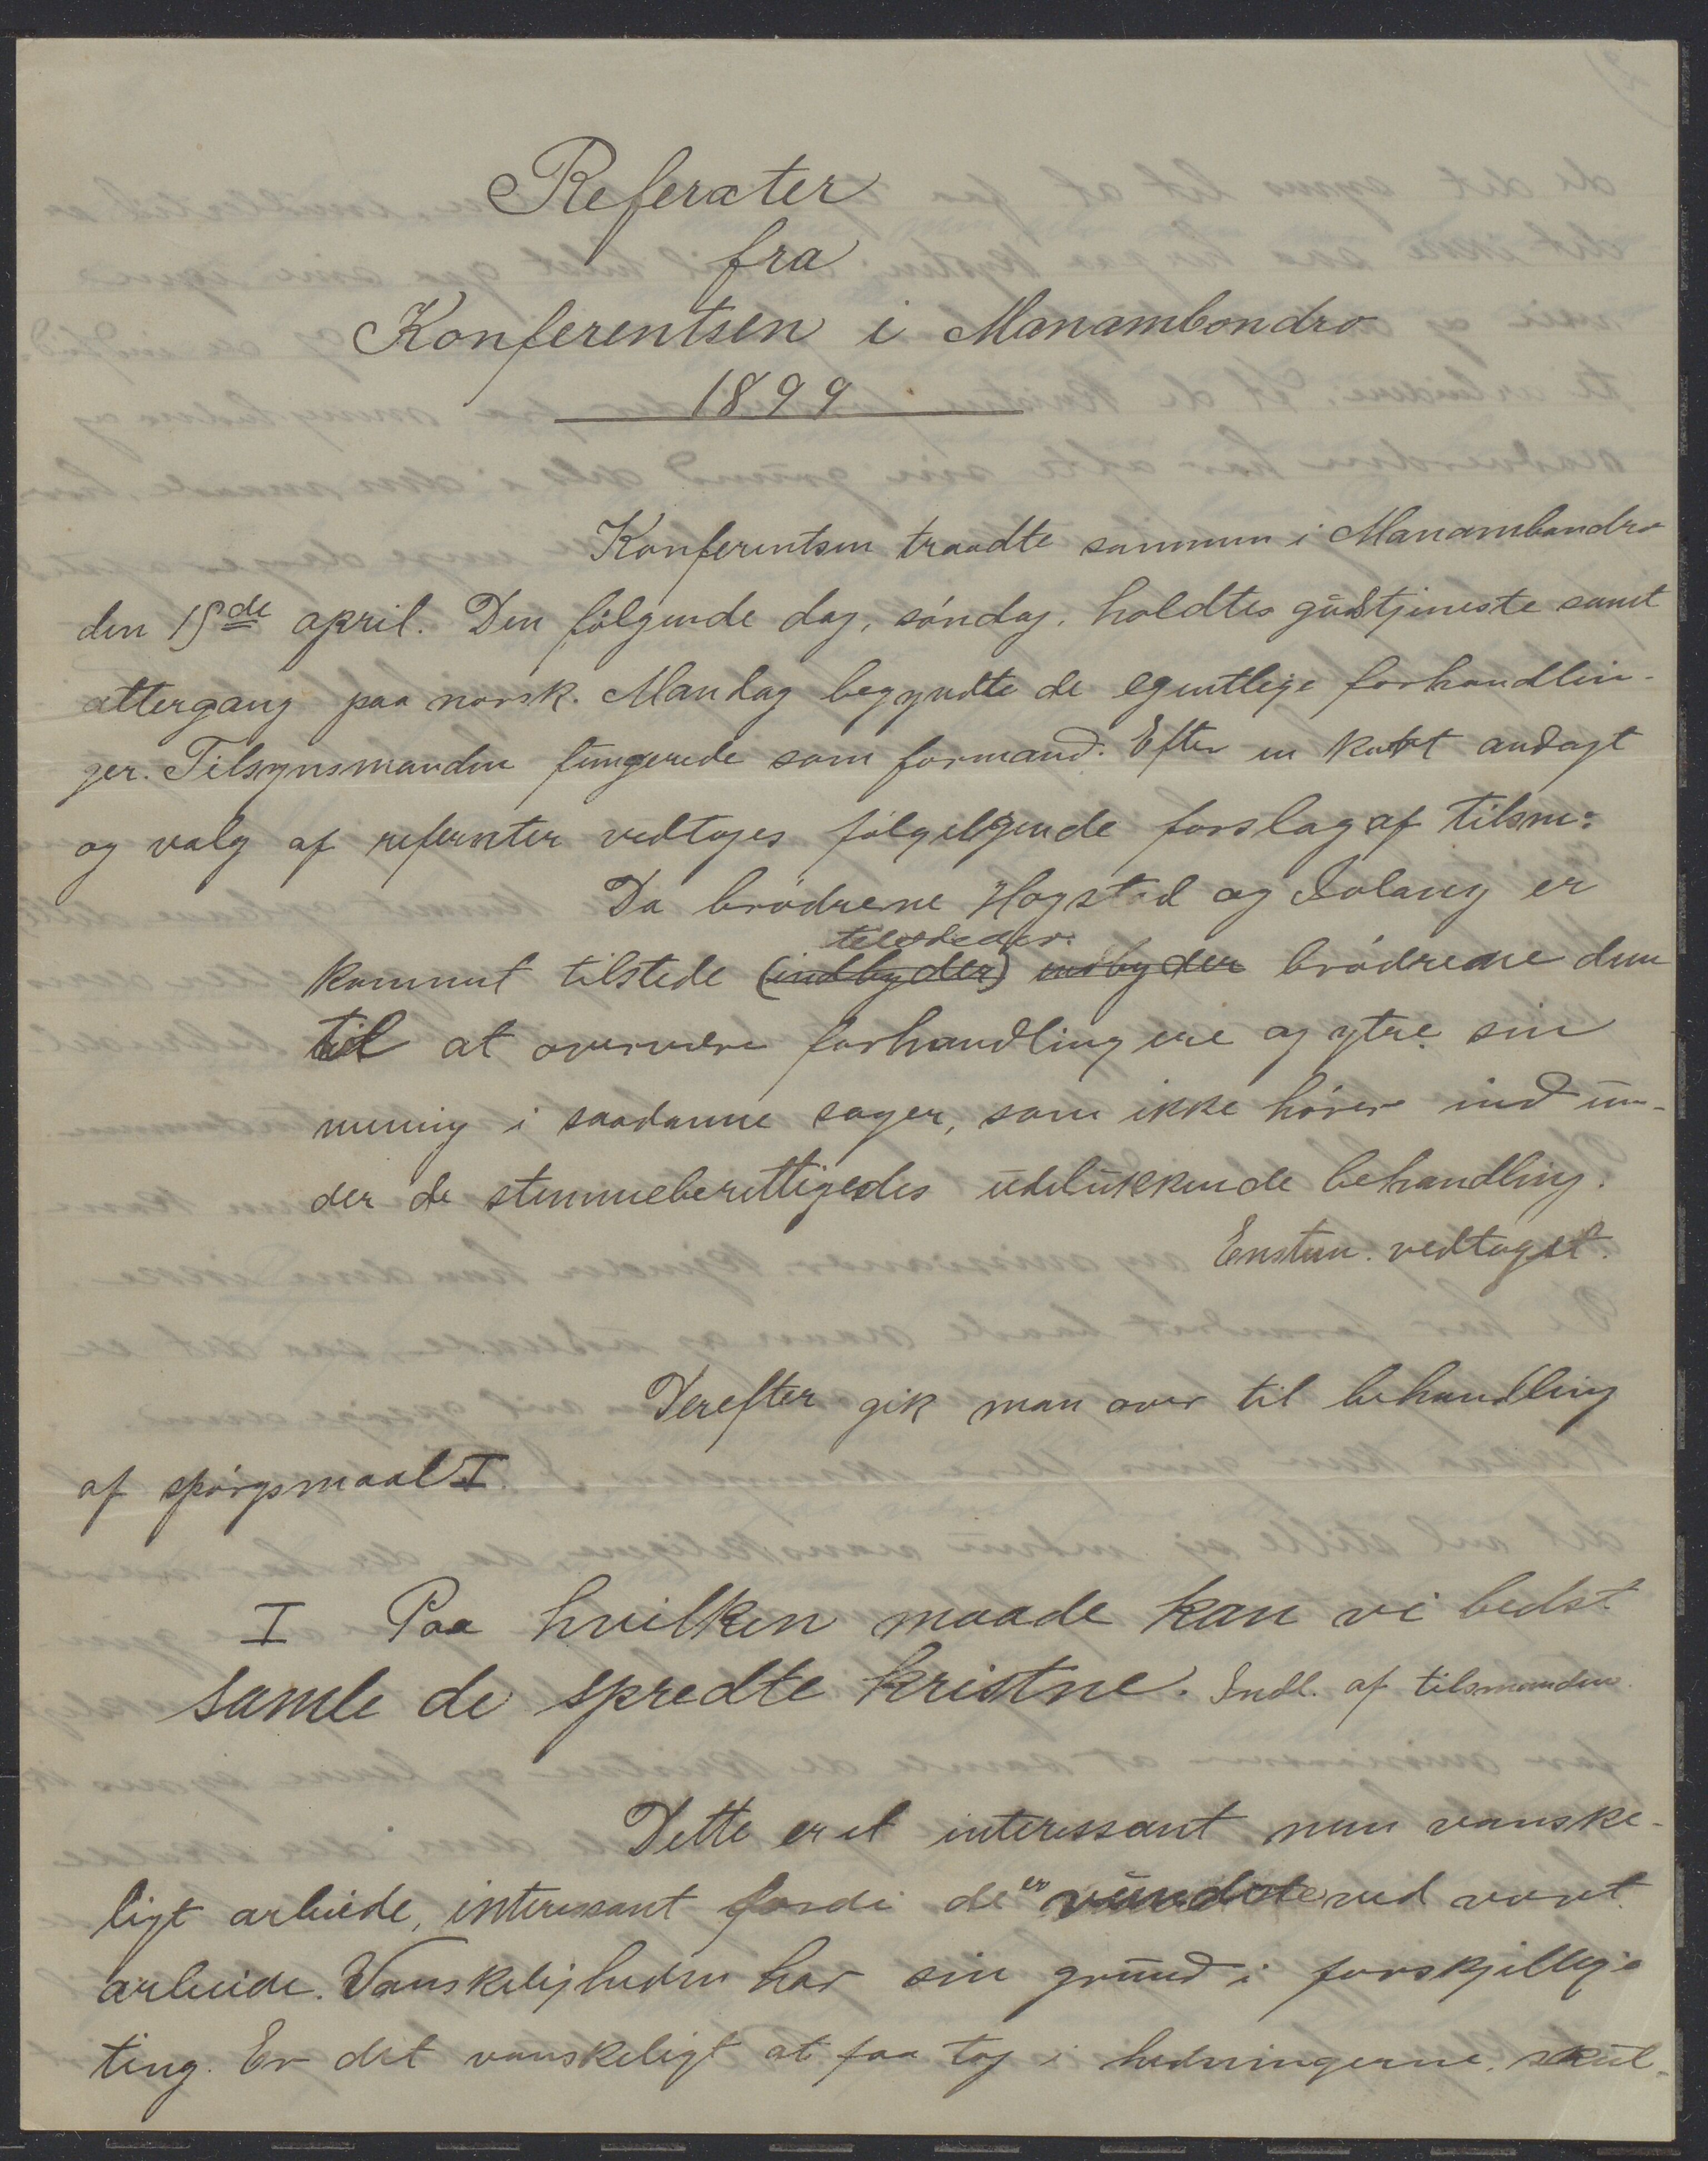 Referater
fra
Konferentsen i Manambondro
1899
Konferentsen traadte sammen i Manambondro
den 15de april. Den følgende dag, søndag, holdtes gudstjeneste samt
altergang paa norsk. Mandag begyndte de egentlige forhandlin-
ger. Tilsynsmanden fungerede som formand. Efter en kort andagt
og valg af referenter vedtoges følgelgende forslag af tilsm:
Da brødrene Hogstad og Solany er
tilstedes
kommet tilstede (indbyder) indbyder brødrene dem
til at overvære forhandlingene og ytre sin
mening i saadanne sager, som ikke hører ind un-
der de stemmeberettigedes udelukkende behandling.
Enstem. vedtaget.
Derefter gik man over til behandling
af spørgsmaal I.
I Paa hvilken maade kan vi bedst
samle de spredte kristne. Indl. af tilsmanden.
Dette er et interessant men vanske-
ligt arbeide, interessant fordi de er vundete ved vort
arbeide. Vanskeligheden har sin grund i forskjellige
ting. Er det vanskeligt at faa tag i hedningerne, skul-